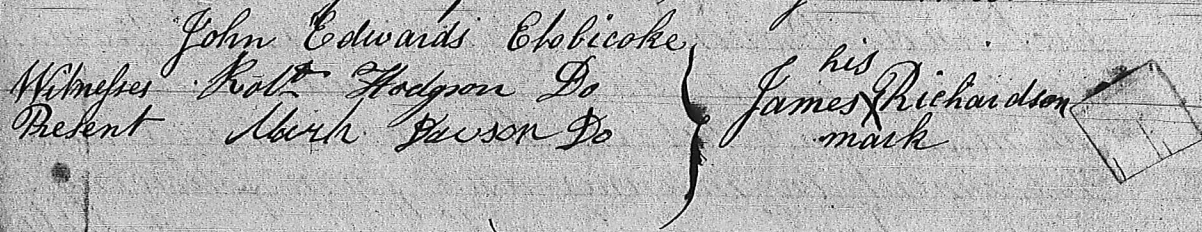 John Edwards Etobicoke
Witnesses Robt Hodgson Do
Present Mark Dawson Do
his
James X Richardson
mark